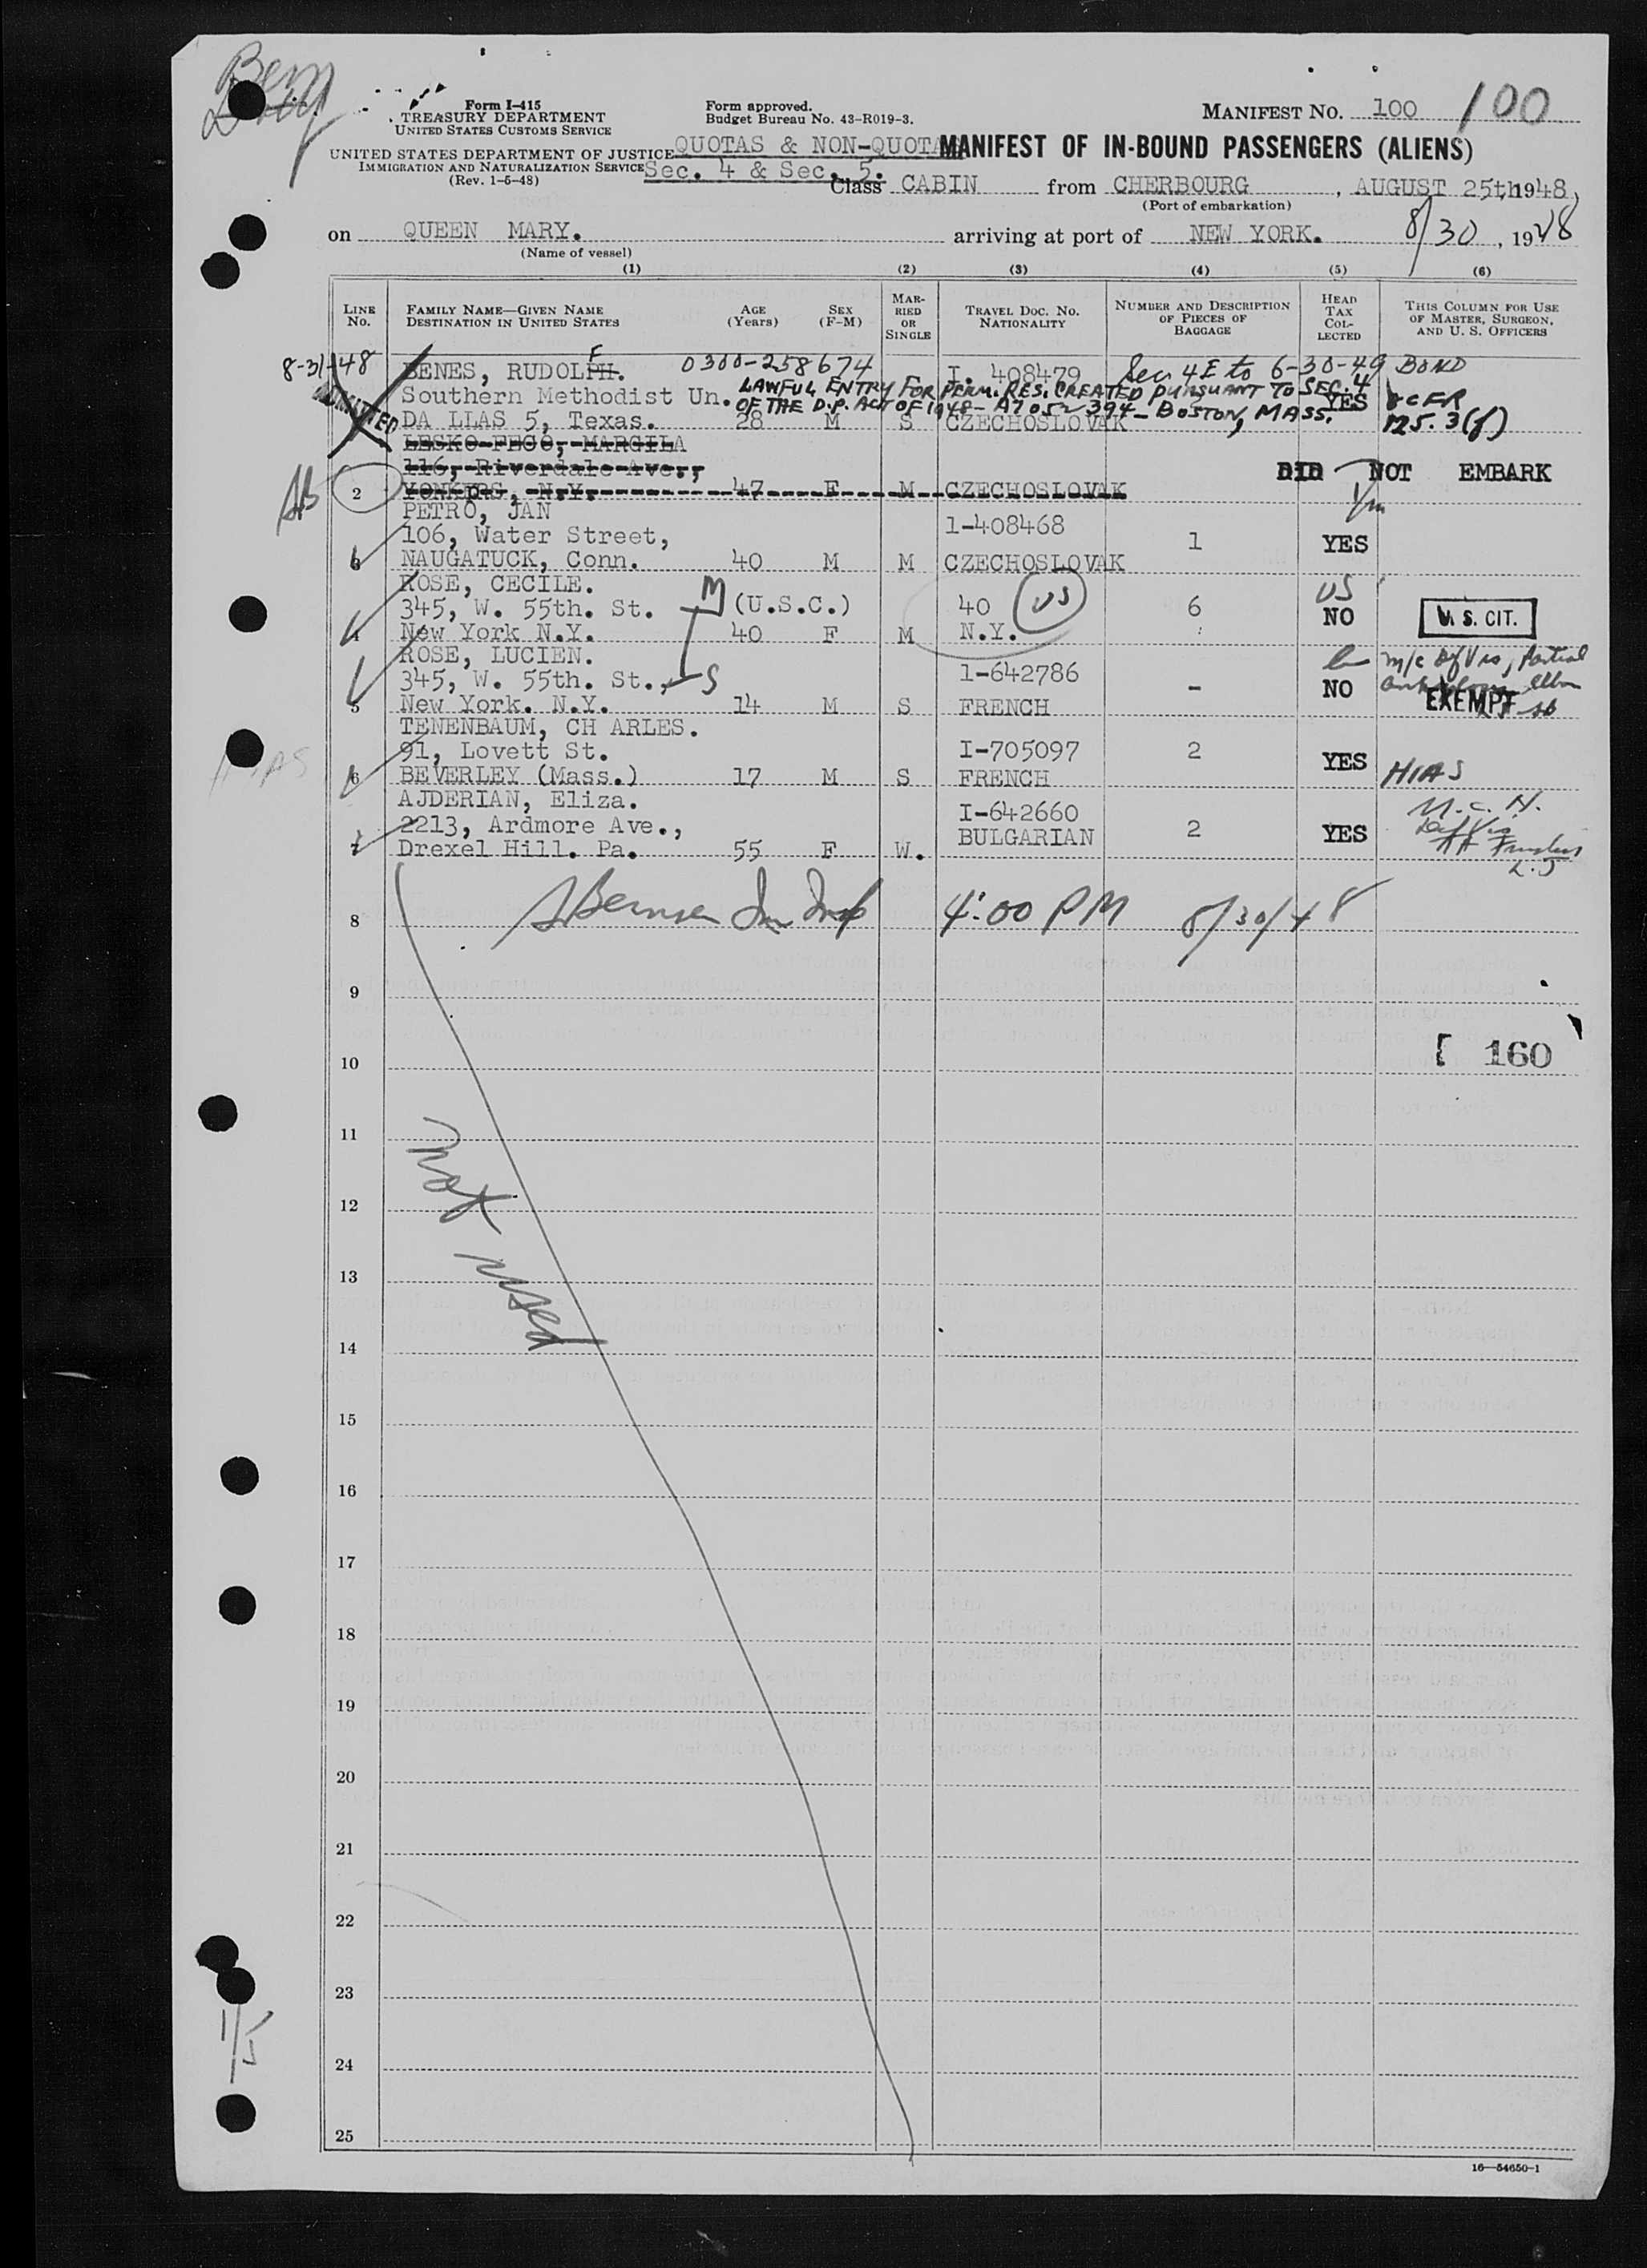 Form I-415
TREASURY DEPARTMENT
UNITED STATES CUSTOMS SERVICE
UNITED STATES DEPARTMENT OF JUSTICE
IMMIGRATION AND NATURALIZATION SERVICE
(Rev. 1-5-48)
Form approved.
Budget Bureau No. 43-R019-3.
MANIFEST NO. 100 100
QUOTAS & NON-QUOTA
Sec. 4 & Sec. 5.
MANIFEST OF IN-BOUND PASSENGERS (ALIENS)
Class CABIN from CHERBOURG, AUGUST 25th, 1948,
(Port of embarkation)
on QUEEN MARY. arriving at port of NEW YORK. 8/30, 1948
(Name of vessel)
(1) (2) (3) (4) (5) (6)
LINE NO. FAMILY NAME—GIVEN NAME DESTINATION IN UNITED STATES AGE (Years) SEX (F-M) MARRIED OR SINGLE TRAVEL DOC. NO. NATIONALITY NUMBER AND DESCRIPTION OF PIECES OF BAGGAGE HEAD TAX COLLECTED THIS COLUMN FOR USE OF MASTER, SURGEON, AND U. S. OFFICERS
8-31-48 BENES, RUDOLPH. F 0300-258674 I. 408479 Sec 4E to 6-30-49 BOND
ADMITTED
Southern Methodist Un. LAWFUL ENTRY FOR PERM. RES. CREATED PURSUANT TO SEC. 4 YES 8 CFR
OF THE D.P. ACT OF 1948 - A7052394 - BOSTON, MASS. 125.3(f)
DA LLAS 5, Texas. 28 M S CZECHOSLOVAK
LESKO-FEGO, MARGILA
116, Riverdale Ave.,
DID NOT EMBARK
2 YONKERS, N.Y. 47 F M CZECHOSLOVAK
PETRO, JAN
106, Water Street, 1-408468 1 YES
3 NAUGATUCK, Conn. 40 M M CZECHOSLOVAK
ROSE, CECILE. US
345, W. 55th. St. M (U.S.C.) 40 US 6 NO U. S. CIT.
4 New York N.Y. 40 F M N.Y.
ROSE, LUCIEN.
345, W. 55th. St., S 1-642786 - NO EXEMPT
5 New York. N.Y. 14 M S FRENCH
TENENBAUM, CH ARLES.
91, Lovett St. I-705097 2 YES
HIAS
6 BEVERLEY (Mass.) 17 M S FRENCH HIAS
AJDERIAN, Eliza. I-642660
2213, Ardmore Ave., BULGARIAN 2 YES
7 Drexel Hill. Pa. 55 F W.
8 4:00 PM 8/30/48
9
[ 160
10
11
not used
12
13
14
15
16
17
18
19
20
21
22
23
24
25
1/5
16—54650-1